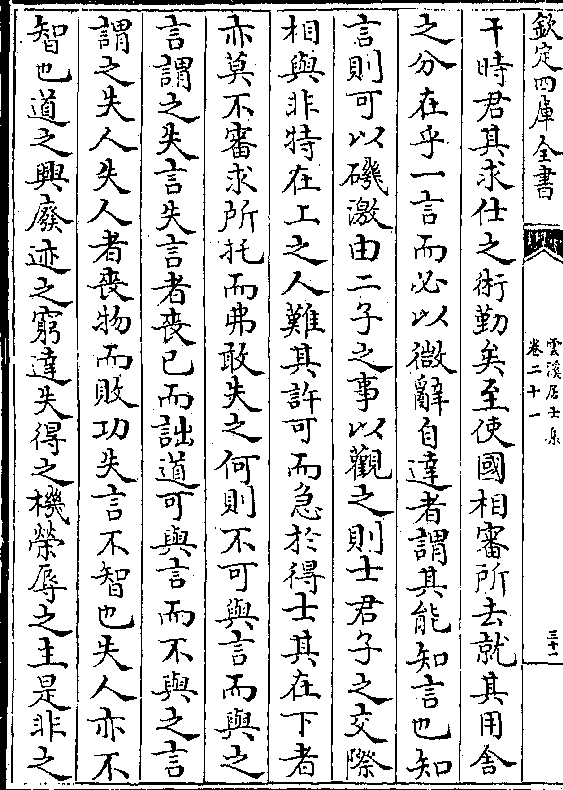 欽定四庫全書
雲溪居士集
卷二十一
三十一
干時君其求仕之術勤矣至使國相審所去就其用舍
之分在乎一言而必以微辭自達者謂其能知言也知
言則可以磯激由二子之事以觀之則士君子之交際
相與非特在上之人難其許可而急於得士其在下者
亦莫不審求所托而弗敢失之何則不可與言而與之
言謂之失言失言者喪已而詘道可與言而不與之言
謂之失人失人者喪物而敗功失言不智也失人亦不
智也道之興廢迹之窮達失得之機榮辱之主是非之